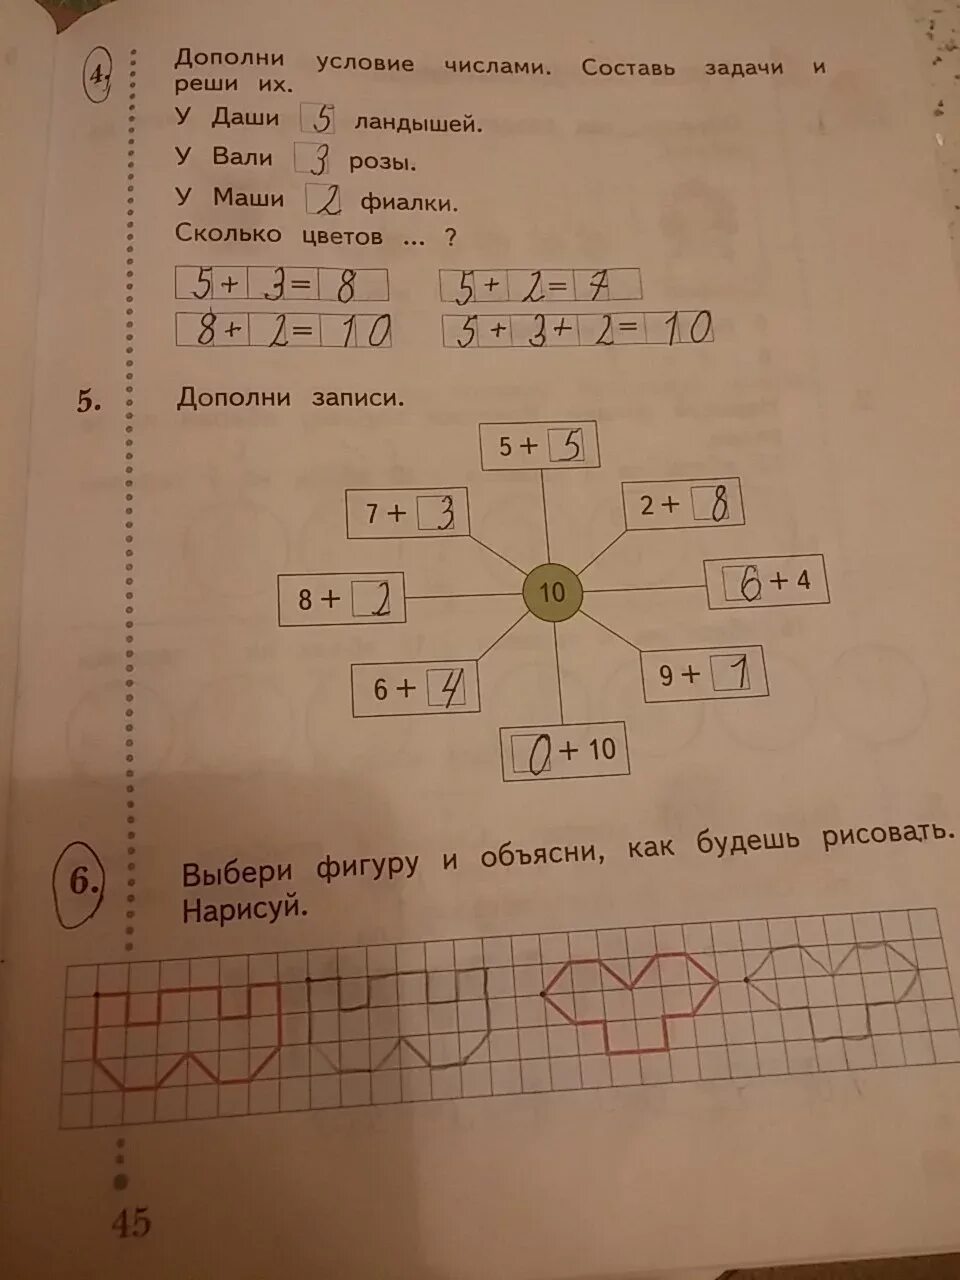 4. Дополни условие числами. Составь задачи и
реши их.
У Даши 5 ландышей.
У Вали 3 розы.
У Маши 2 фиалки.
Сколько цветов ... ?
5 + 3 = 8 5 + 2 = 7
8 + 2 = 10 5 + 3 + 2 = 10
5. Дополни записи.
5 + 5
7 + 3 2 + 8
8 + 2 10 6 + 4
6 + 4 9 + 1
0 + 10
6. Выбери фигуру и объясни, как будешь рисовать.
Нарисуй.
45